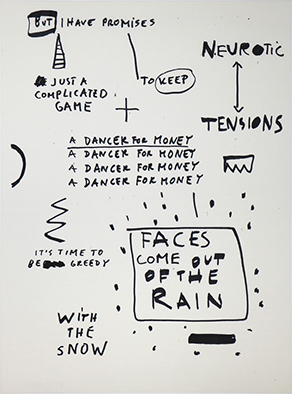 BUT I HAVE PROMISES
TO KEEP
JUST A
COMPLICATED
GAME
NEUROTIC
TENSIONS
A DANCER FOR MONEY
A DANCER FOR MONEY
A DANCER FOR MONEY
A DANCER FOR MONEY
IT'S TIME TO
BE GREEDY
FACES
COME OUT
OF THE
RAIN
WITH
THE
SNOW